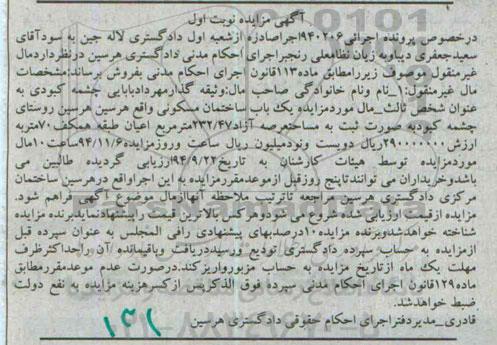 آگهی مزایده نوبت اول
درخصوص پرونده اجرائی۹۴۰۲۰۶اجراصادره ازشعبه اول دادگستری لاله جین به سودآقای
سعیدجعفری دیباوبه زیان نظامعلی رنجبراجرای احکام مدنی دادگستری هرسین درنظرداردمال
غیرمنقول موصوف زیررامطابق ماده۱۱۳قانون اجرای احکام مدنی بفروش برساند:مشخصات
مال غیرمنقول:۱_نام ونام خانوادگی صاحب مال:وثیقه گذارمهردادبابایی چشمه کبودی به
عنوان شخص ثالث_مال موردمزایده یک باب ساختمان مسکونی واقع هرسین هرسین روستای
چشمه کبودبه صورت ثبت به مساحتعرصه آزاد۲۳۲/۴۷مترمربع اعیان طبقه همکف۷۰متربه
ارزش۲۹۰۰۰۰۰۰۰ریال دویست ونودمیلیون ریال ساعت وروزمزایده۹۴/۱۱/۶ساعت۱۰مال
موردمزایده توسط هیئات کارشنان به تاریخ۹۴/۹/۲۲ارزیابی گردیده طالبین می
باشدوخریداران می توانندتاپنج روزقبل ازموعدمقررمزایده به این اجراواقع دوهرسین ساختمان
مرکزی دادگستری هرسین مراجعه تاترتیب ملاحظه آنهاازمال موضوع آگهی فراهم شود.
مزایده ازقیمت ارزیابی شده شروع می شودوهرکس بالاترین قیمت راپیشنهادنمایدبرنده مزایده
شناخته خواهدشدوبرنده مزایده۱۰درصدبهای پیشنهادی رافی المجلس به عنوان سپرده قبل
ازمزایده به حساب سپرده دادگستری تودیع ورسیددریافت وباقیمانده آن راحداکثرظرف
مهلت یک ماه ازتاریخ مزایده به حساب مزبورواریزکند.درصورت عدم موعدمقررمطابق
ماده۱۲۹قانون اجرای احکام مدنی سپرده فوق الذکرپس ازکسرهزینه مزایده به نفع دولت
ضبط خواهدشد.
قادری_مدیردفتراجرای احکام حقوقی دادگستری هرسین